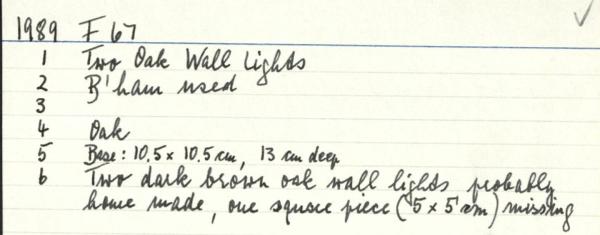 1989 F 67
1 Two Oak Wall Lights
2 B'ham used
3
4 Oak
5 Base: 10.5 x 10.5 cm, 13 cm deep
6 Two dark brown oak wall lights probably
home made, one square piece (5 x 5 cm) missing